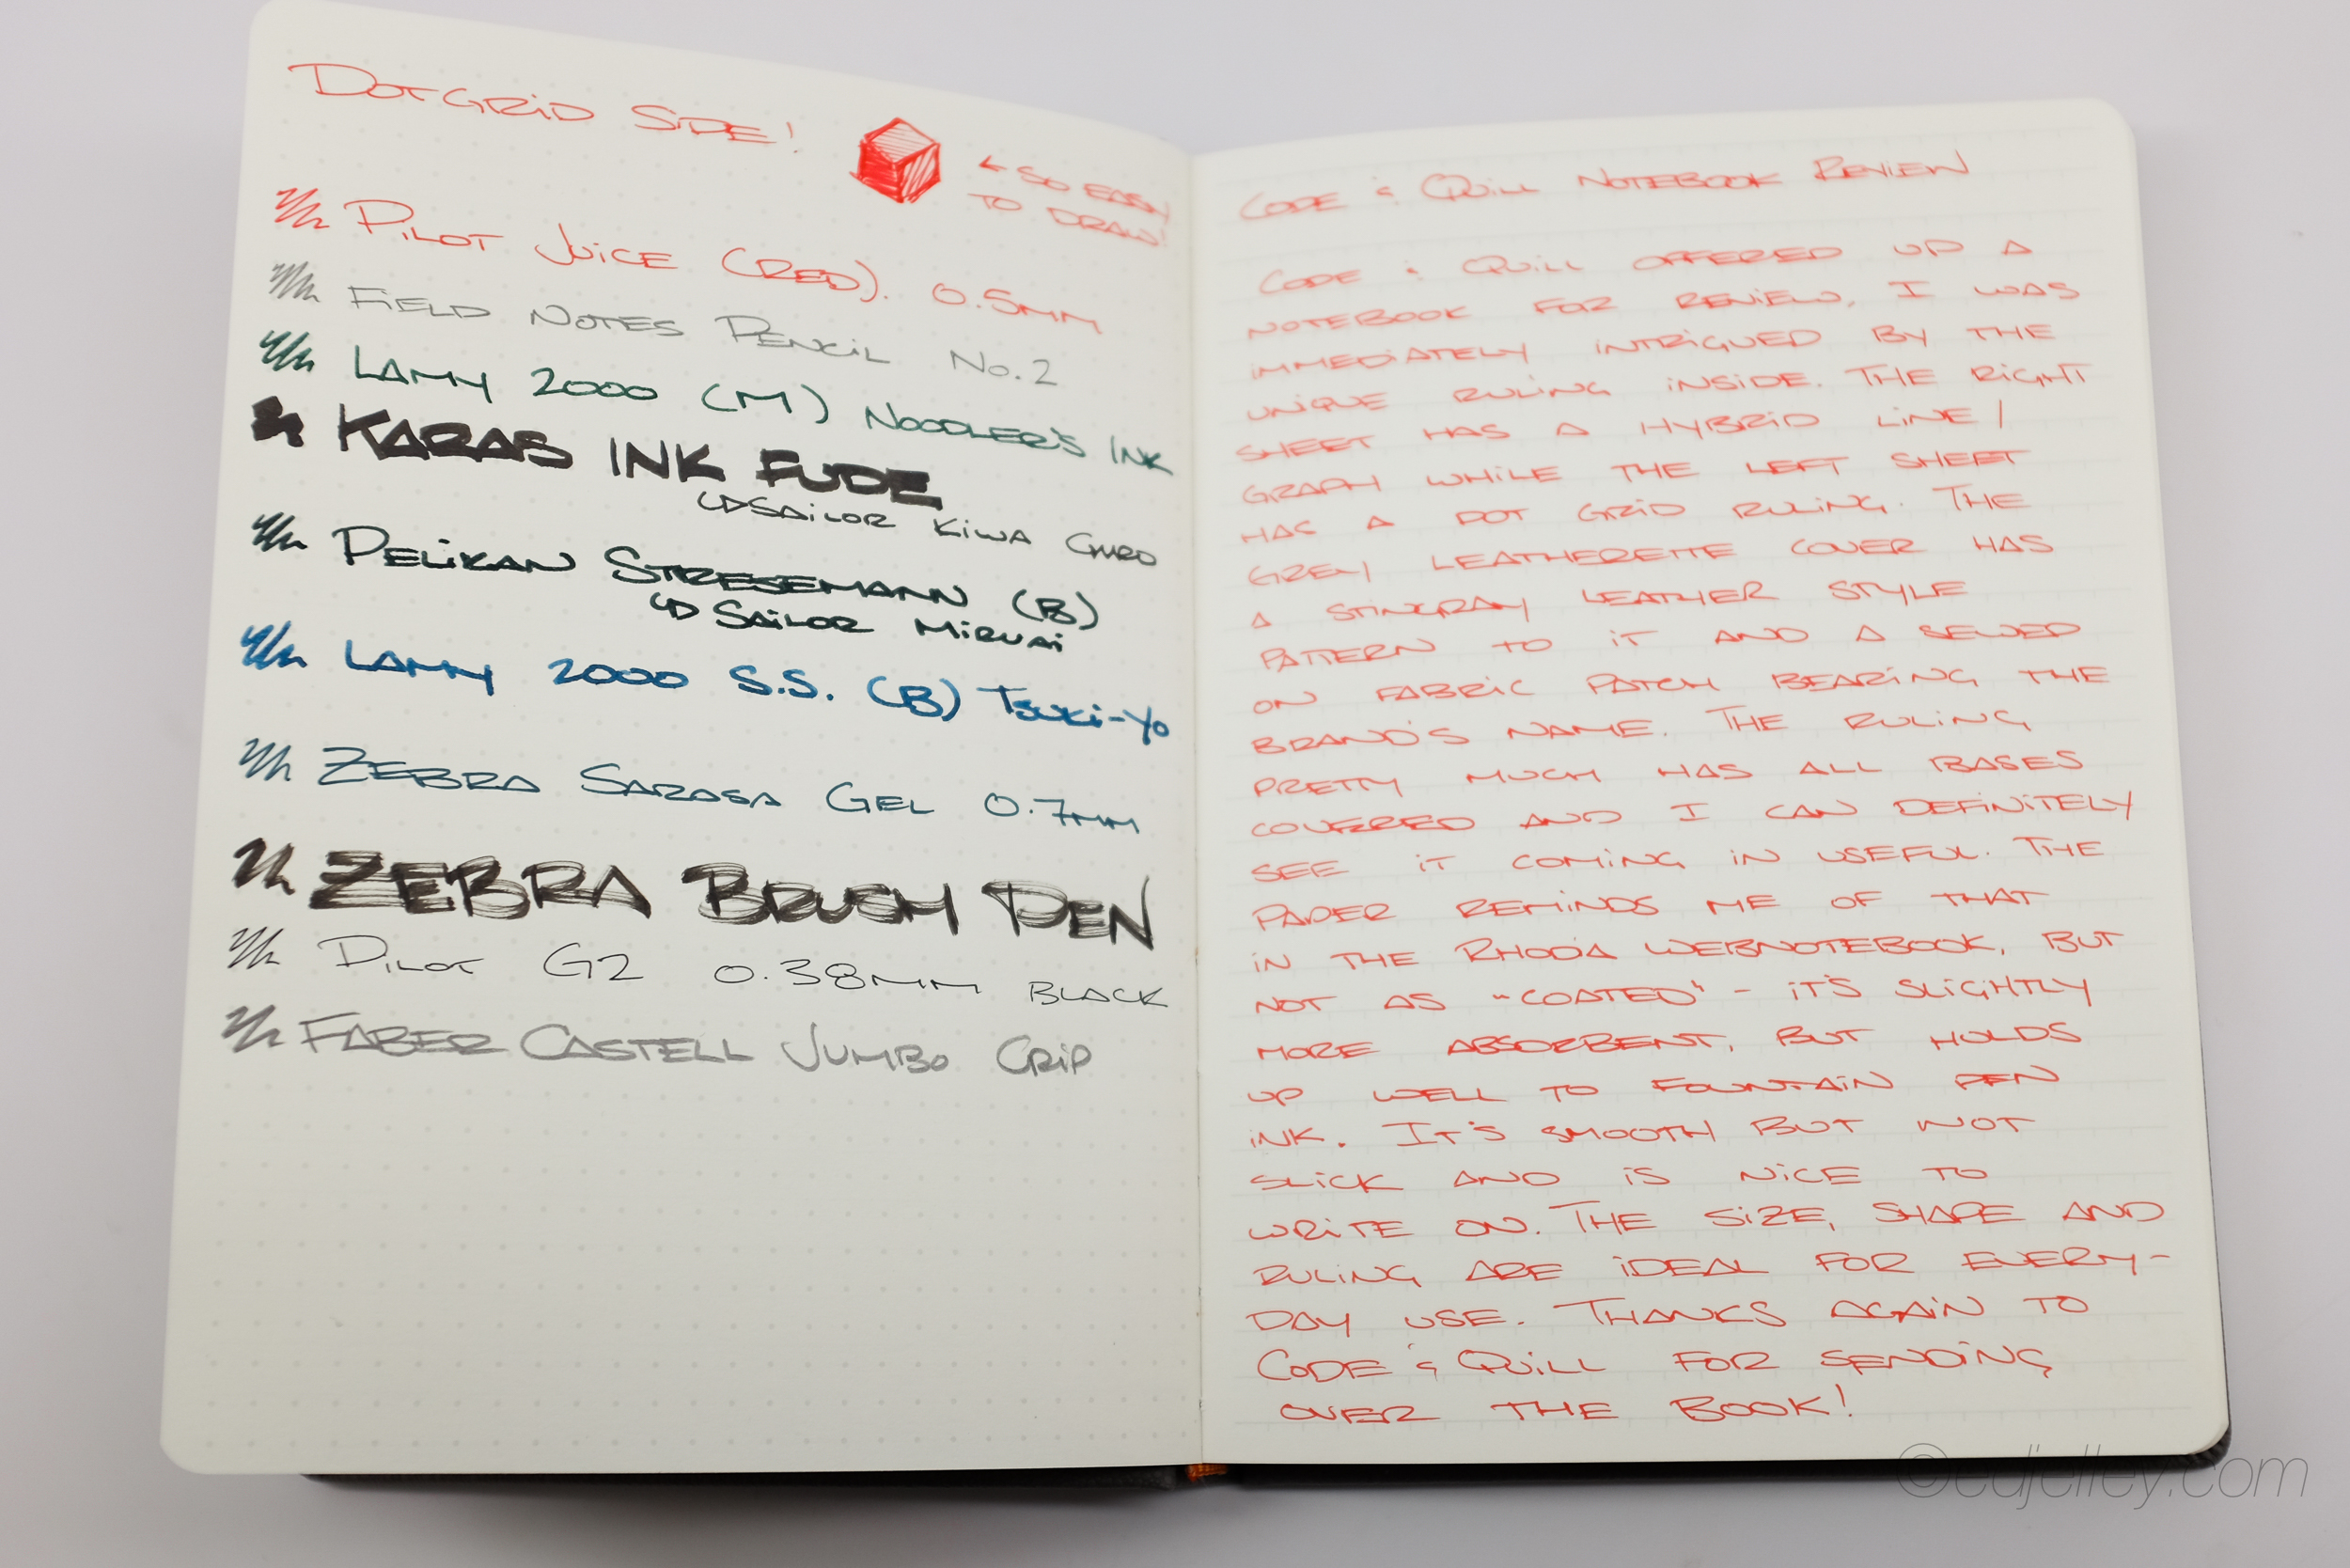 DotGrid Side!
← So easy
to draw!
Pilot Juice (Red). 0.5mm
Field Notes Pencil No.2
Lamy 2000 (M) Noodler's Ink
Karas Ink Fude
↳ Sailor Kiwa Guro
Pelikan Stresemann (B)
↳ Sailor Miruai
Lamy 2000 S.S. (B) Tsuki-Yo
Zebra Sarasa Gel 0.7mm
Zebra Brush Pen
Pilot G2 0.38mm Black
Faber Castell Jumbo Grip
Code & Quill Notebook Review
Code & Quill offered up a
notebook for review, I was
immediately intrigued by the
unique ruling inside. The right
sheet has a hybrid line/
graph while the left sheet
has a dot grid ruling. The
grey leatherette cover has
a stingray leather style
pattern to it and a sewed
on fabric patch bearing the
brand's name. The ruling
pretty much has all bases
covered and I can definitely
see it coming in useful. The
paper reminds me of that
in the Rhodia Webnotebook, but
not as "coated" - it's slightly
more absorbent, but holds
up well to fountain pen
ink. It's smooth but not
slick and is nice to
write on. The size, shape and
ruling are ideal for every-
day use. Thanks again to
Code & Quill for sending
over the book!
©edjelley.com